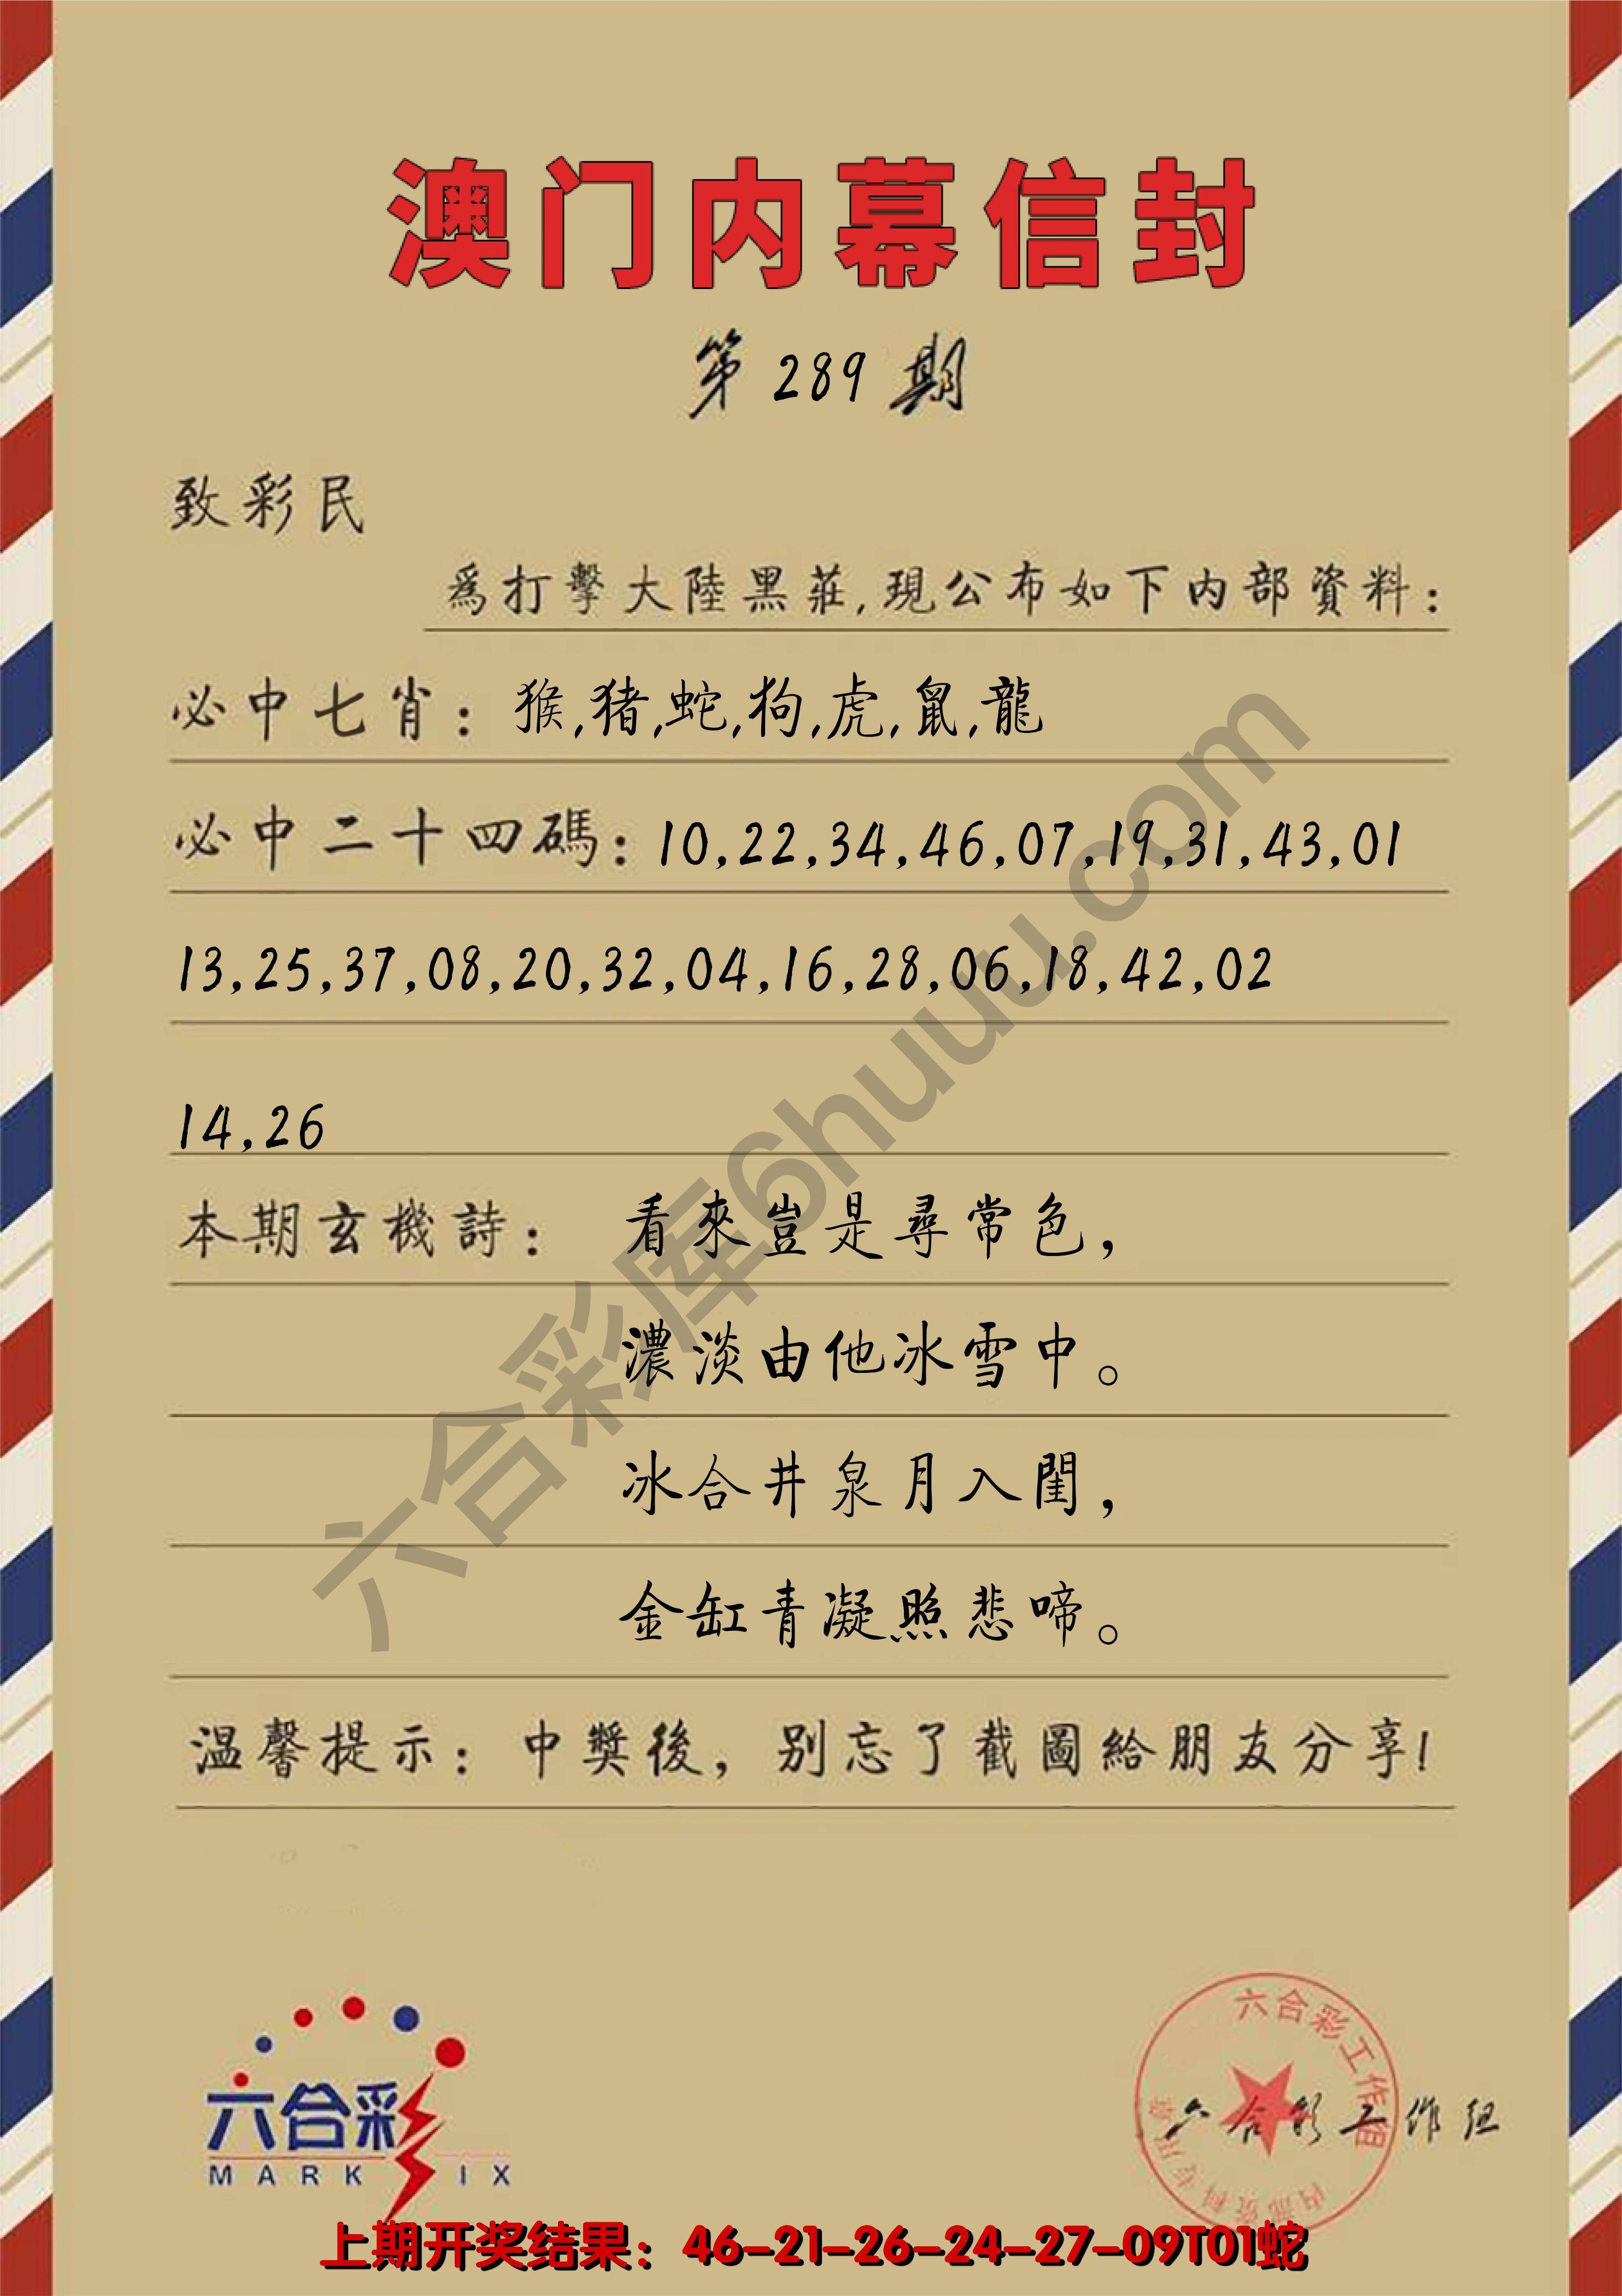 澳门内幕信封
第 289 期
致彩民
爲打擊大陸黑莊,現公布如下内部資料:
必中七肖: 猴,猪,蛇,狗,虎,鼠,龍
必中二十四碼: 10,22,34,46,07,19,31,43,01
13,25,37,08,20,32,04,16,28,06,18,42,02
14,26
本期玄機詩: 看來豈是尋常色,
濃淡由他冰雪中。
冰合井泉月入閨,
金缸青凝照悲啼。
温馨提示: 中獎後, 别忘了截圖給朋友分享!
六合彩库6huuu.com
六合彩
MARK SIX
六合彩工作组
内部资料专用章
六合彩工作组
上期开奖结果: 46-21-26-24-27-09T01蛇